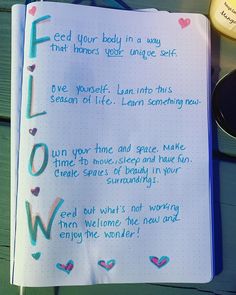 Feed your body in a way
that honors your unique self.
Love yourself. Lean into this
season of life. Learn something new.
Own your time and space. Make
time to move, sleep and have fun.
Create spaces of beauty in your
surroundings.
Weed out what's not working
then welcome the new and
enjoy the wonder!